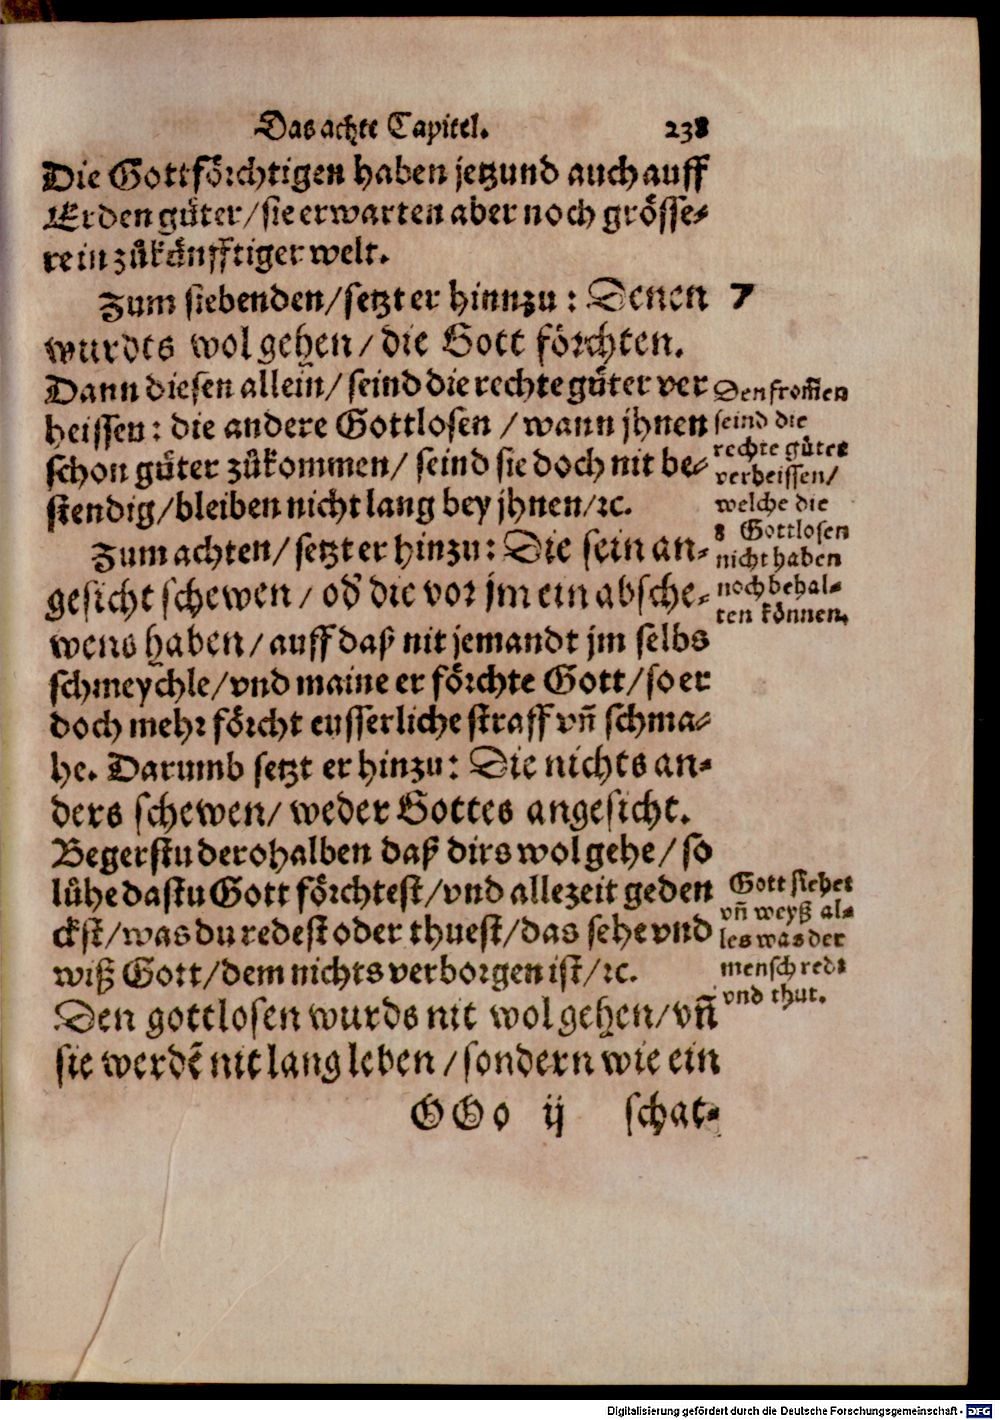 Das achte Capitel. 238
Die Gottförchtigen haben jetzund auch auff
Erden guͤter/ sie erwarten aber noch grösse-
re in zůkünfftiger welt.
Zum siebenden/ setzt er hinnzu: Denen 7
wurdts wol gehen/ die Gott förchten.
Dann diesen allein/ seind die rechte guͤter ver
heissen: die andere Gottlosen / wann jhnen
schon guͤter zůkommen/ seind sie doch nit be-
stendig/ bleiben nicht lang bey jhnen/ ꝛc.
Den from̃en
seind die
rechte guͤter
verheissen/
welche die
Gottlosen
nicht haben
noch behal-
ten können.
Zum achten/ setzt er hinzu: Die sein an- 8
gesicht schewen/ od̕ die vor jm ein absche-
wens haben/ auff daß nit jemandt jm selbs
schmeychle/ vnd maine er förchte Gott/ so er
doch mehr förcht eusserliche straff vñ schma-
he. Darumb setzt er hinzu: Die nichts an-
ders schewen/ weder Gottes angesicht.
Begerstu derohalben daß dirs wol gehe/ so
lůhe dastu Gott förchtest/ vnd allezeit geden
ckst/ was du redest oder thuest/ das sehe vnd
wiß Gott/ dem nichts verborgen ist/ ꝛc.
Gott siehet
vñ weyß al-
les was der
mensch redt
vnd thut.
Den gottlosen wurds nit wol gehen/ vñ
sie werdẽ nit lang leben / sondern wie ein
GGo ij schat-
Digitalisierung gefördert durch die Deutsche Forschungsgemeinschaft - DFG